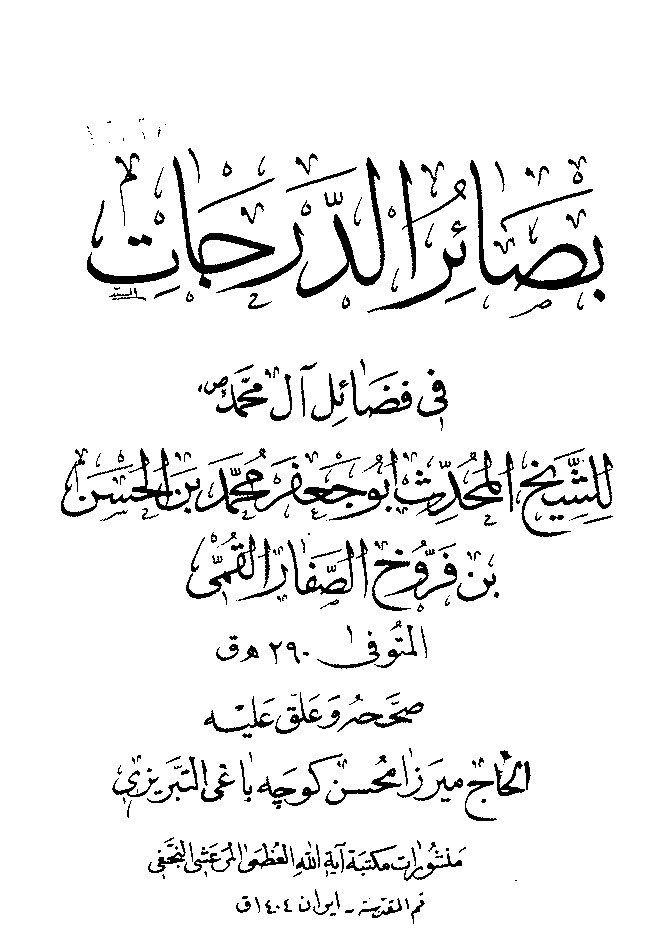 بَصَائِرُ الدَّرَجَاتِ
فى فضَائِل آل محمّد ص
لِلشَّيخ المُحَدِّث أبُو جَعفَر مُحمَّد بن الحَسَن
بن فَرُّوخ الصَّفار القُمّى
المتُوفى ٢٩٠ هـ ق
صحّحه وَعَلّق عَليه
الحاج ميرزا محسن كوچه باغى التبريزى
منشورات مكتبة آية الله العظمى المرعشى النجفى
قم المقدسة ـ ايران ١٤٠٤ق